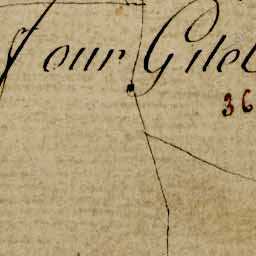 four Gilel
36